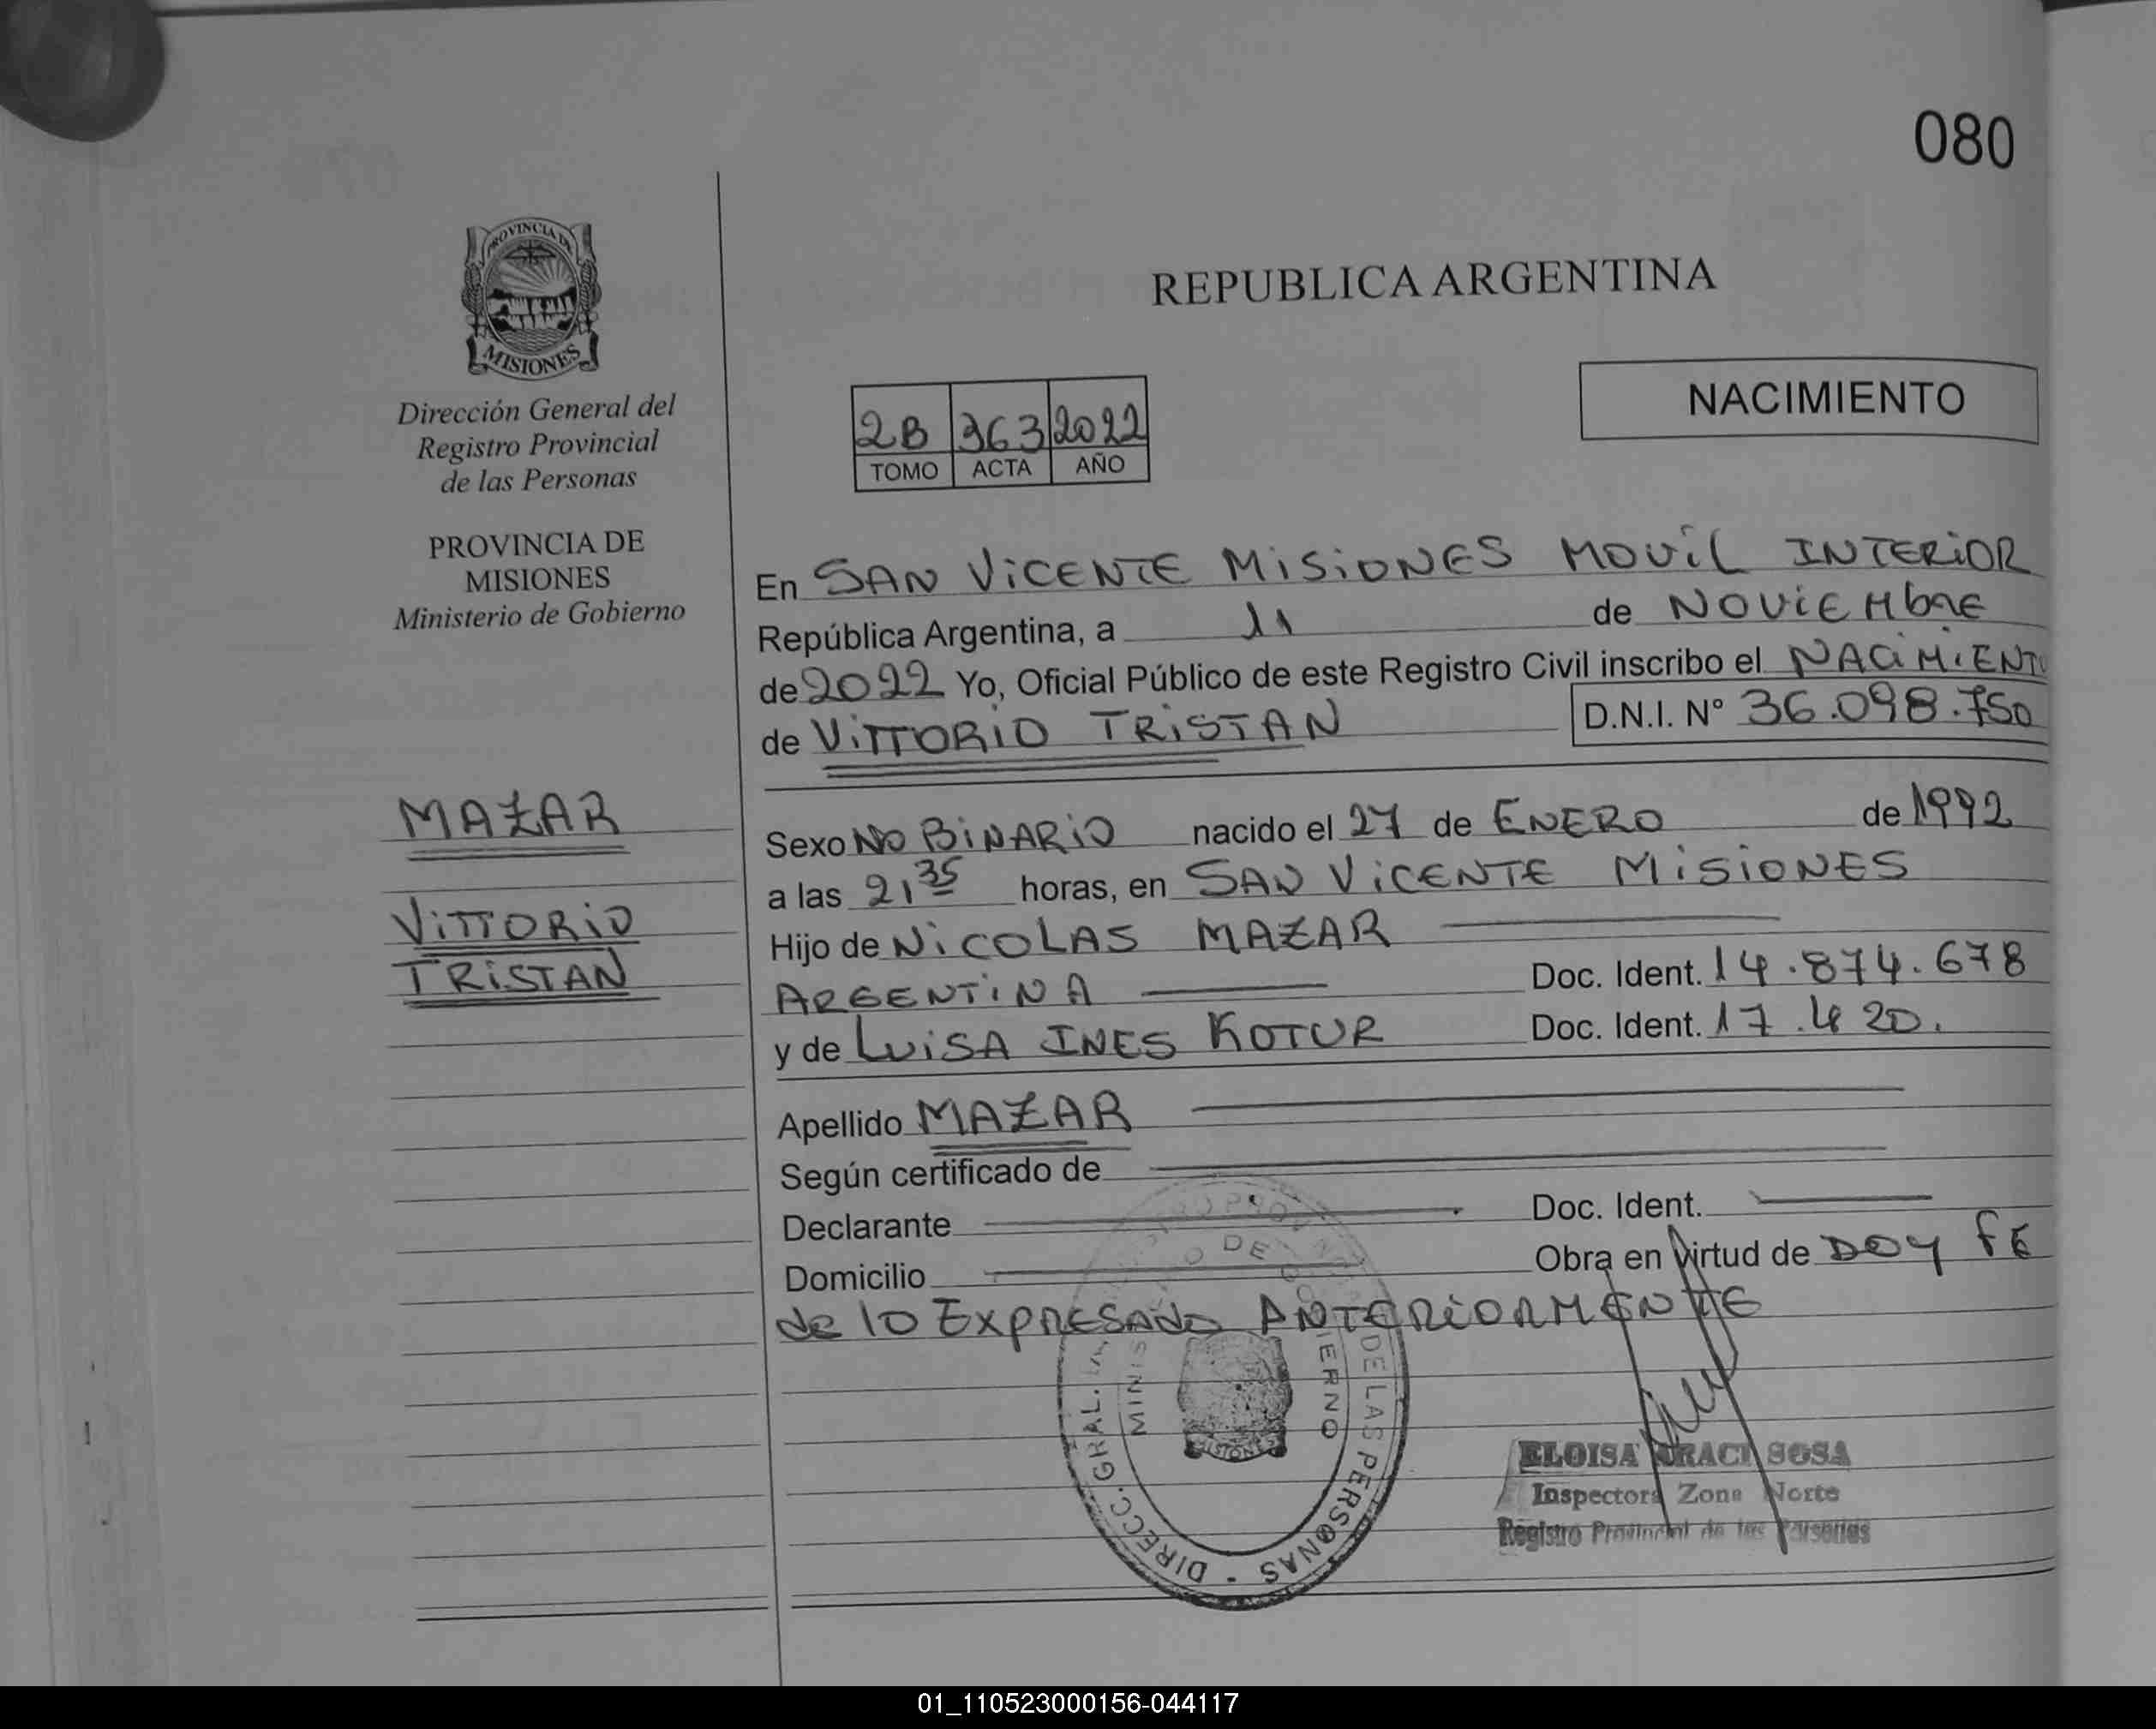 080
PROVINCIA DE
MISIONES
Dirección General del
Registro Provincial
de las Personas
PROVINCIA DE
MISIONES
Ministerio de Gobierno
MAZAR
VITTORIO
TRISTAN
REPUBLICA ARGENTINA
NACIMIENTO
2B 363 2022
TOMO ACTA AÑO
En SAN VICENTE MISIONES MOVIL INTERIOR
República Argentina, a 11 de NOVIEMbRE
de 2022 Yo, Oficial Público de este Registro Civil inscribo el NACIMIENTO
de VITTORIO TRISTAN D.N.I. N° 36.098.750
Sexo NO BINARIO nacido el 27 de ENERO de 1992
a las 21 35 horas, en SAN VICENTE MISIONES
Hijo de NICOLAS MAZAR
ARGENTINA Doc. Ident. 14.874.678
y de LUISA INES KOTUR Doc. Ident. 17.420.
Apellido MAZAR
Según certificado de
Declarante Doc. Ident.
Domicilio Obra en virtud de DOY FE
de lo EXPRESAdo ANTERIORMENTE
DIRECC. GRAL. DE LAS PERSONAS -
MISIONES
ELOISA IRACI SOSA
Inspectora Zona Norte
Registro Provincial de las Personas
01_110523000156-044117